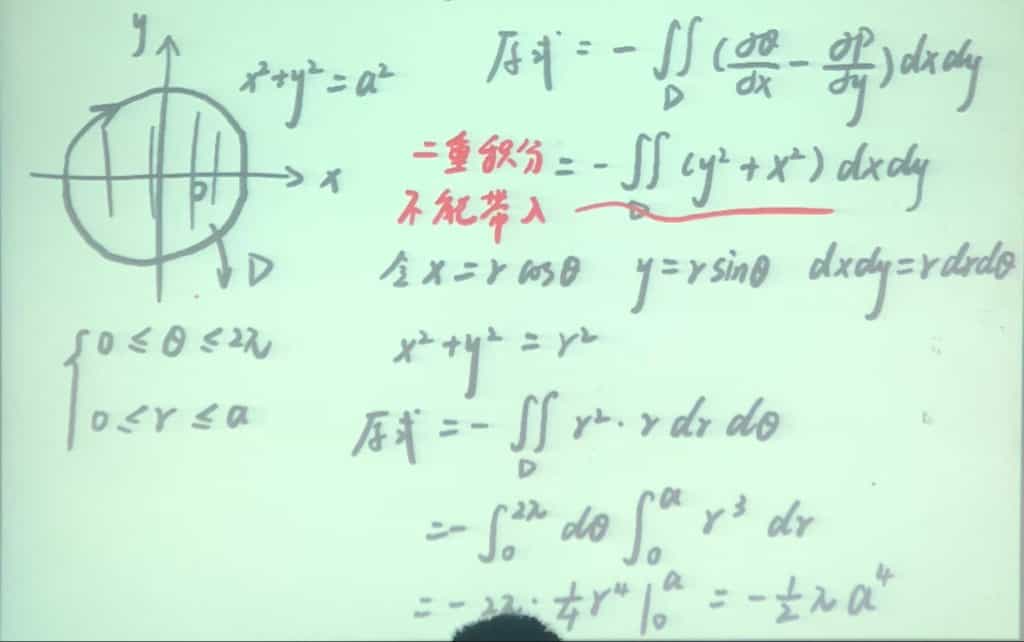 y
x²+y²=a²
x
D
D
原式 = -∬_D (∂Q/∂x - ∂P/∂y) dxdy
二重积分
不能带入
= -∬_D (y²+x²) dxdy
令 x=r cosθ y=r sinθ dxdy=r drdθ
{ 0≤θ≤2π
0≤r≤a
x²+y²=r²
原式 = -∬_D r²·r dr dθ
= -∫₀^{2π} dθ ∫₀^a r³ dr
= -2π·¼r⁴|₀^a = -½πa⁴